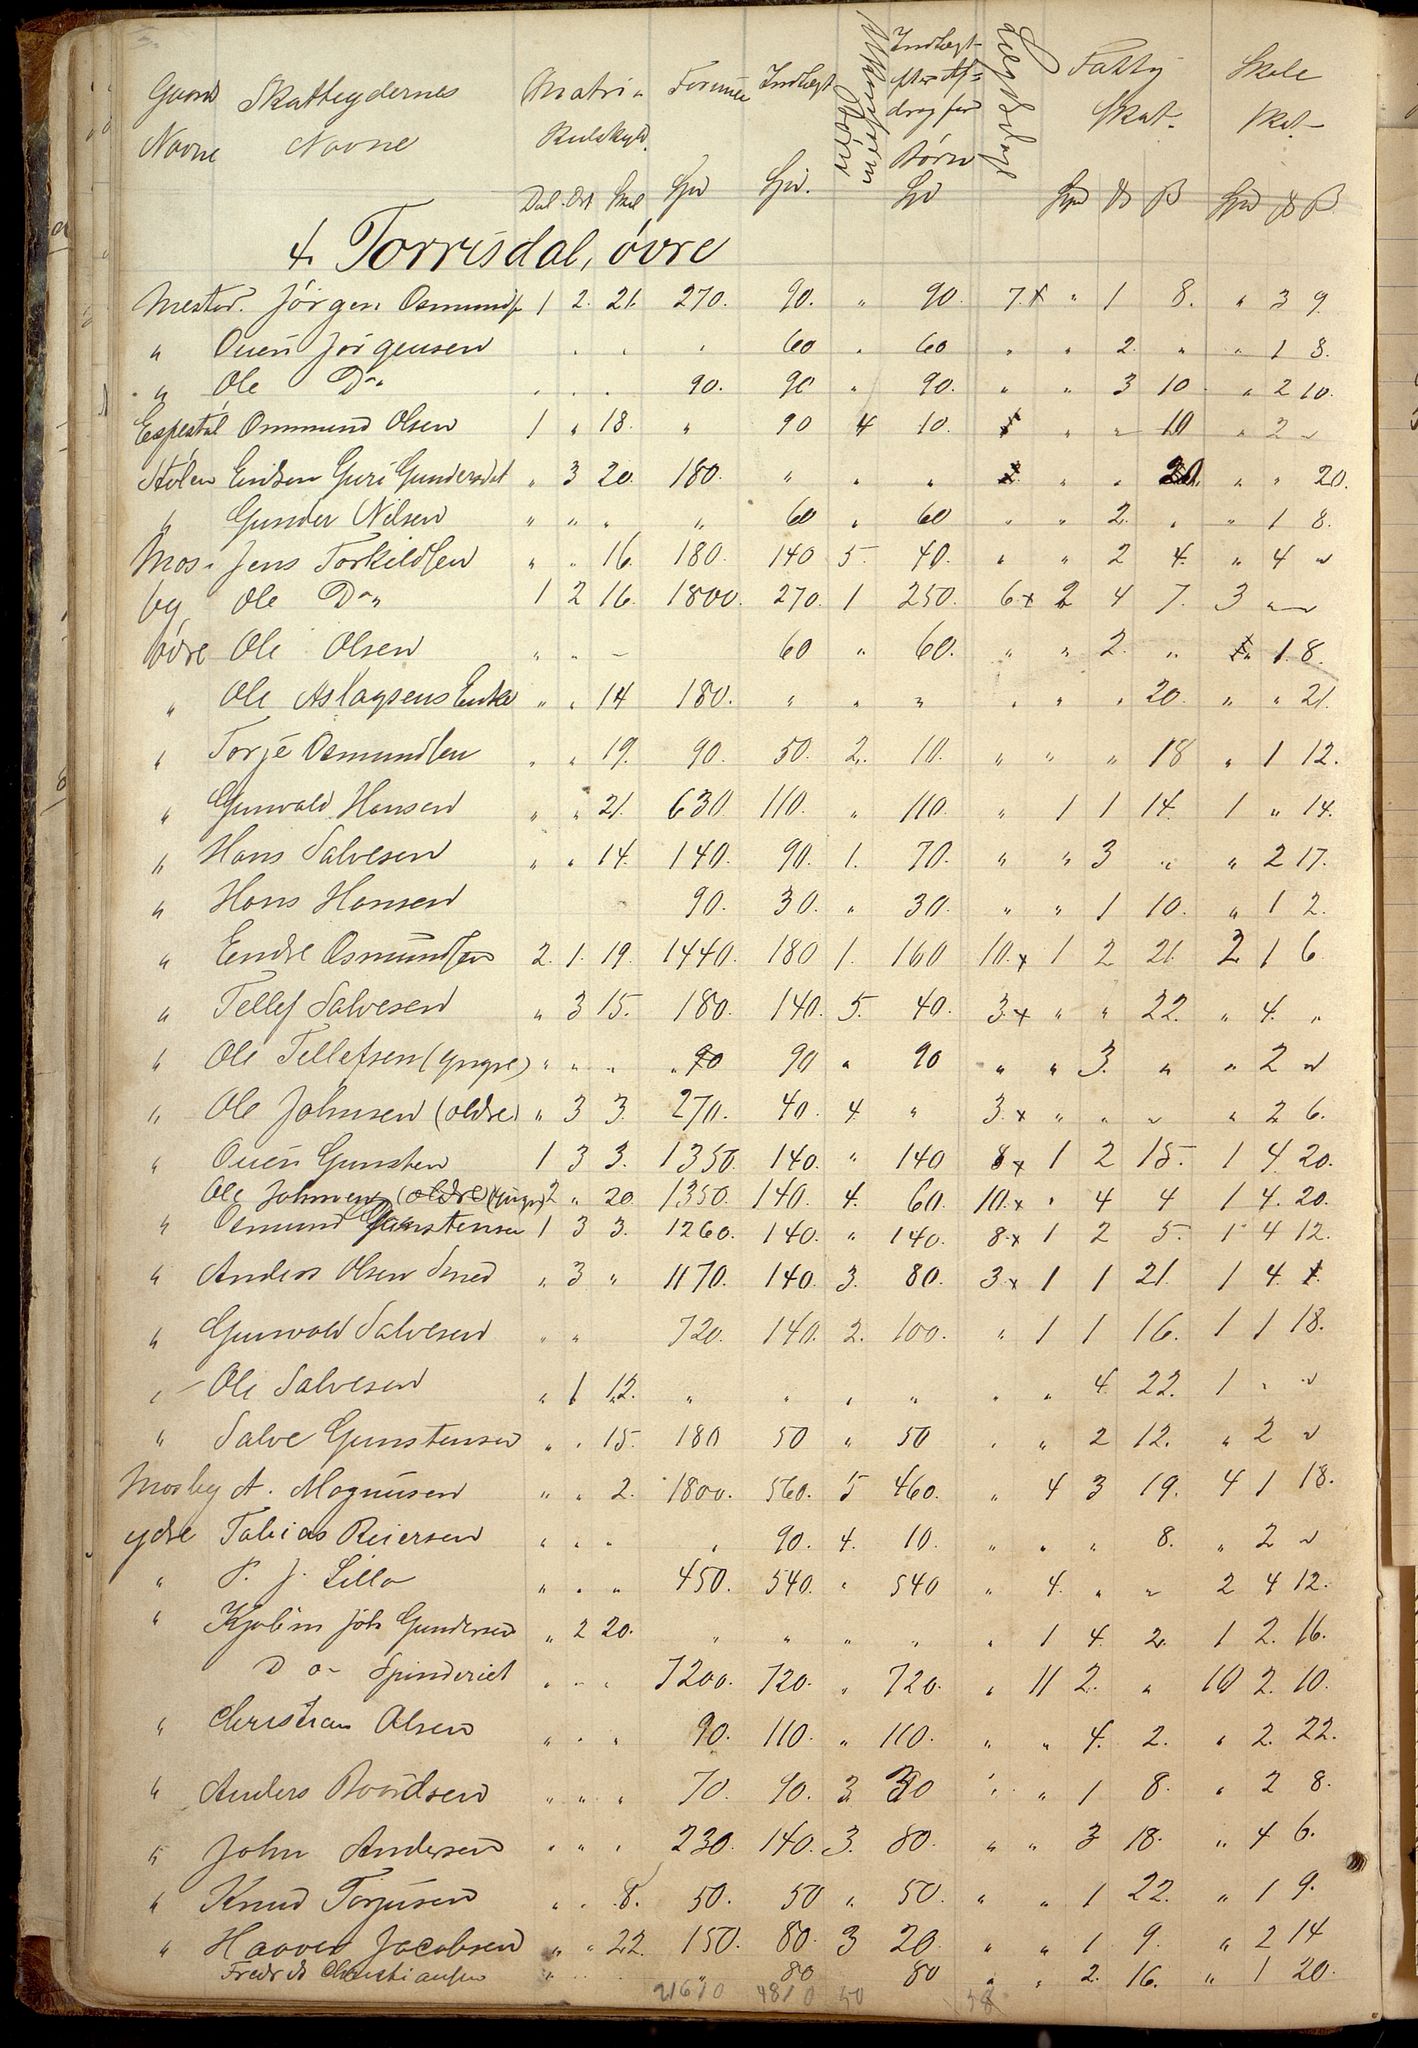 Gaards Skatteydernes Matri- Formue Indtægt Indtægt Fattig Skole
Navne Navne kulskyld efter Af- Skat Skat
drag for
Børn
Dal. Ort Skil Spd Spd. Spd Spd ß Spd ß
4. Torrisdal, övre
Mestad. Jörgen Osmunds 1 2. 21. 270. 90. " 90. 7 x " 1 8. " 3 9.
" Ouen Jörgensen . . " 60 " 60 " " 2. " " 1 8.
" Ole Do . . . 90. 90 " 90. " " 3 10. " 2 10.
Espestøl Ommund Olsen 1 " 18. " 90 4 10. " " 10 " 2 "
Stølen Endsen Guri Gundersdt " 3 20. 180. " " " " " 20. " " 20.
" Gunder Nilsen " " " " 60 " 60 " " 2. " " 1 8.
Mos- Jens Torkildsen " " 16. 180. 140 5. 40. " " 2 4. " 4 "
by Ole Do 1 2 16. 1800. 270. 1 250. 6 x 2 4 7. 3 " "
övre Ole Olsen " " - 60 " 60. " " 2. " " 1. 8.
" Ole Aslagsens Enke " " 14 180. " " " " " " 20. " " 21.
" Torje Osmundsen " " 19. 90. 50. 2. 10. " " " 18 " 1 12.
" Gunvald Hansen " " 21. 630. 110. " 110. " 1 1 14. 1 " 14.
" Hans Salvesen " " 14. 140. 90. 1. 70. " " 3 " " 2 17.
" Hans Hansen 90. 30. " 30. " " 1 10. " 1 2.
" Endre Osmundsen 2. 1. 19. 1440. 180 1. 160 10. x 1 2 21. 2 1 6.
" Tellef Salvesen " 3 15. 180. 140. 5. 40. 3. x " " 22. " 4. "
" Ole Tellefsen (yngre) " " " " 90 90 " 90 " " 3. " " 2 "
" Ole Johnsen (oldre) " 3 3 270. 40. 4. " 3. x " " " " 2 6.
" Ouen Gunsten 1 3 3. 1350. 140. " 140 8 x 1 2 15. 1 4. 20.
Ole Johnsen (oldre) (yngre) 2 " 20. 1350. 140. 4. 60. 10. x " 4 4 1 4. 20.
" Osmund Gunstensen 1 3 3. 1260. 140. " 140. 8. x 1 2 5. 1 4 12.
" Anders Olsen Smed " 3 " 1170. 140. 3. 80. 3. x 1 1 21. 1 4. 1.
" Gunvald Salvesen " " 720. 140. 2. 100. " 1 1 16. 1 1 18.
" Ole Salvesen " 1 12. " " " " " " 4. 22. 1 " "
" Salve Gunstensen " " 15. 180 50 " 50 " " 2 12. " 2 "
Mosby A. Magnusen " " 2. 1800. 560. 5 460. " 4 3 19. 4 1 18.
ydre Tobias Reiersen " " " " 90. 4. 10. " " " 8. " 2 "
" P. J. Lilla " " " 450. 540. " 540 " 4. " " 2 4 12.
" Joh Gundersen " 2 20. " " " " " 1 4. 2. 1 2. 16.
Do - Spinderiet " " " 7200. 720. " 720. " 11 2. " 10 2. 10.
" Christian Olsen " " " 90. 110. " 110. " " 4. 2. " 2. 22.
" Anders Baardsen " " " 70. 90. 3 30 " " 1 8. " 2 8.
" John Andersen " " " 230. 140. 3. 80. " " 3 18. " 4 6.
" Knud Torjusen " " 8. 50. 50 " 50. " " 1 22. " 1 9.
" Haaver Jacobsen " " 22. 150. 80. 3 20. " " 1. 9. " 2 14
Fredrik Christiansen " " " " 80 80 " " 2. 16. " 1 20.
21610 4810 50 58